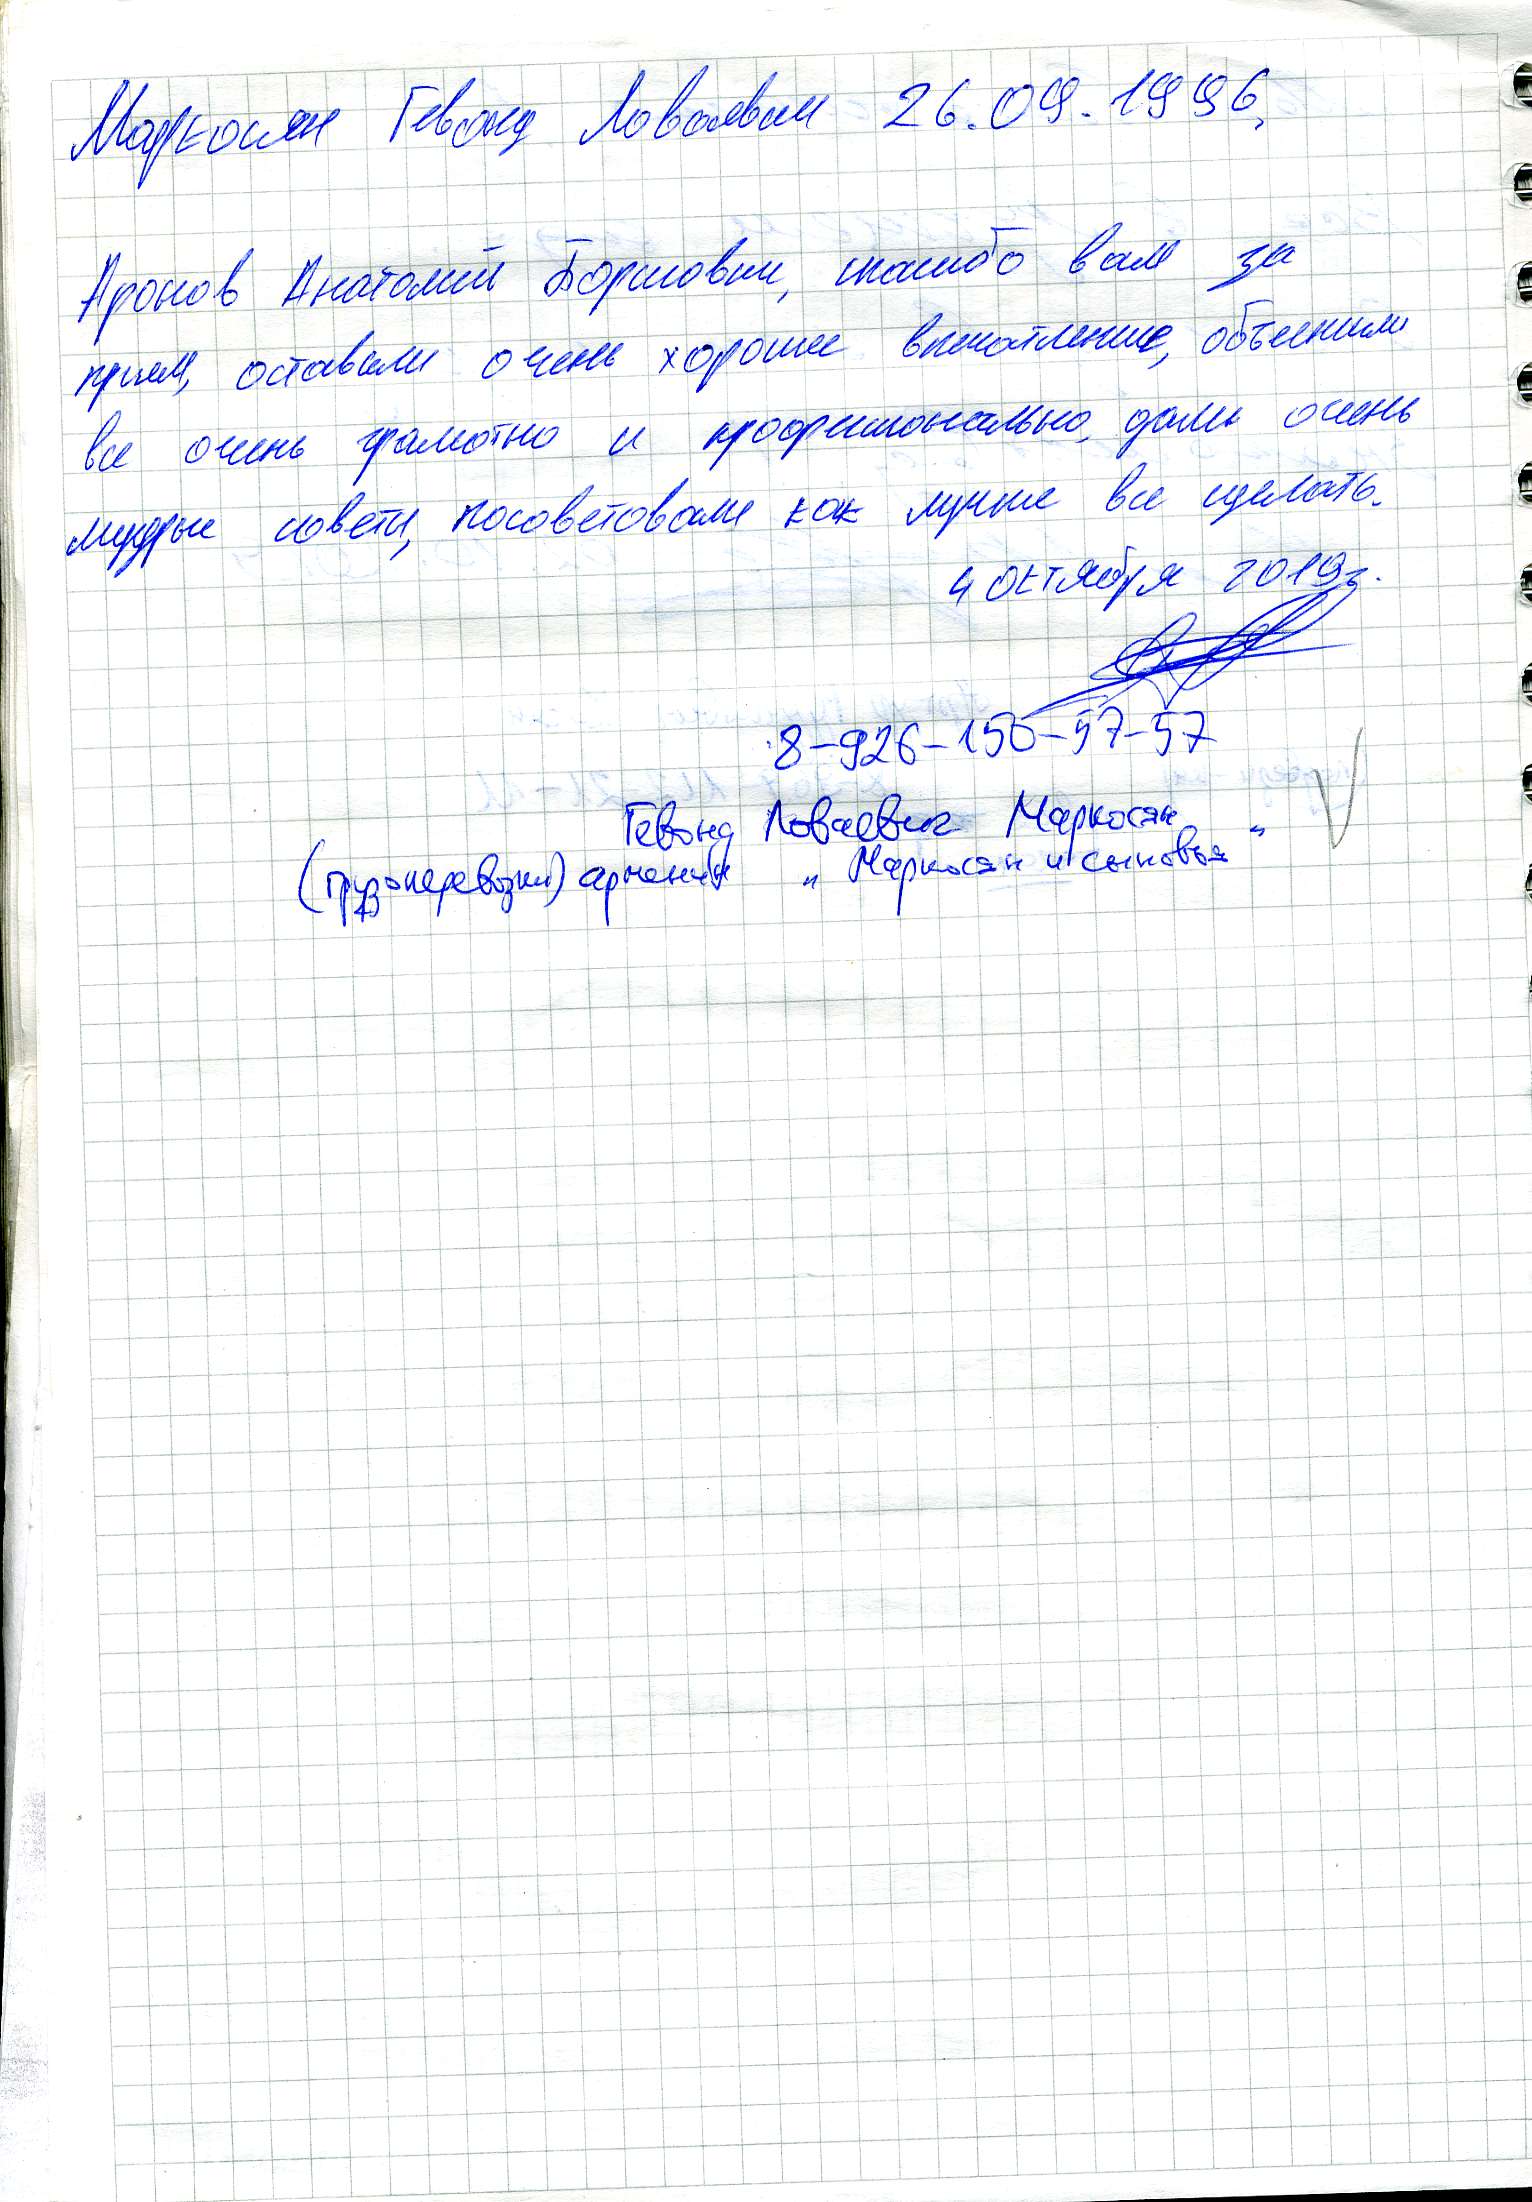 Маркосян Гевонд Ловаевич 26.09.1996,
Аронов Анатолий Борисович, спасибо вам за
прием, оставили очень хорошее впечатление, объяснили
все очень грамотно и професионально, дали очень
мудрые советы, посоветовали как лучше все сделать.
4 октября 2019г.
8-926-150-57-57
Гевонд Ловаевич Маркосян
(грузоперевозки) „Маркосян и сыновья"